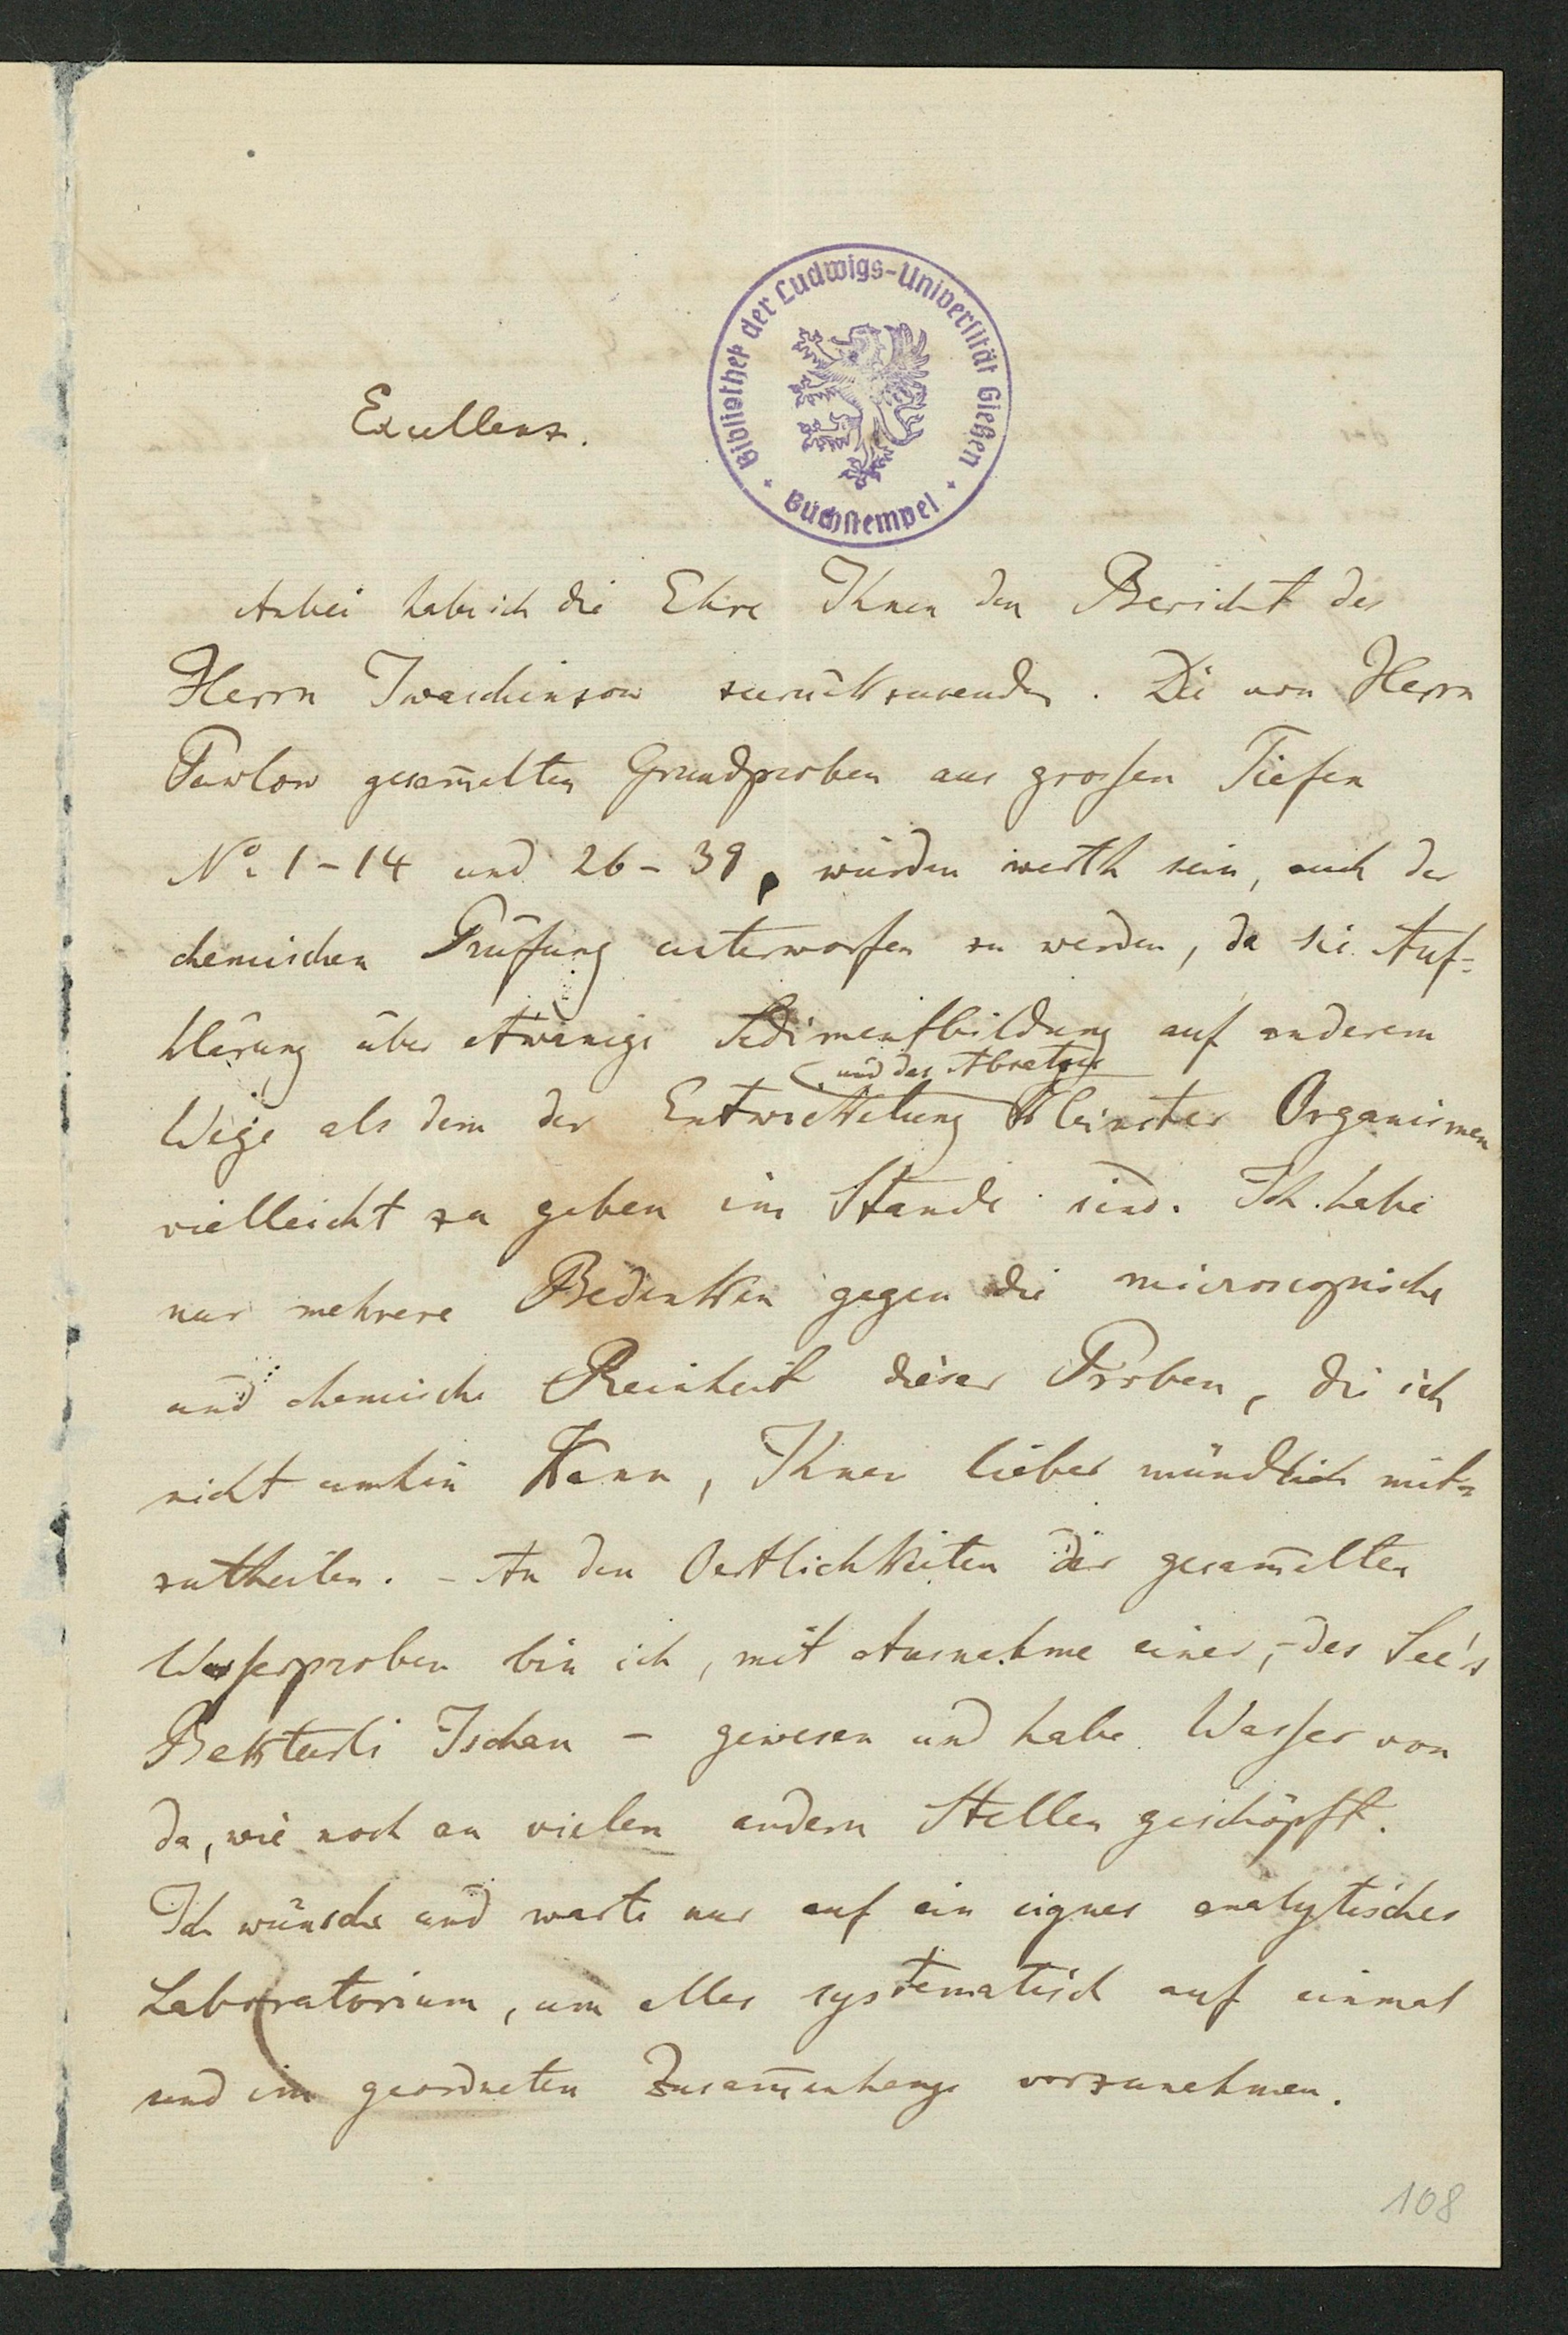 Bibliothek der Ludwigs-Universität Gießen
Buchstempel
Excellenz.
Anbei habe ich die Ehre Ihnen den Bericht des
Herrn Iwaschinzow zurückzusenden. Die von Herrn
Pawlow gesam̄elten Grundproben aus grossen Tiefen
No. 1-14 und 26-39, würden werth sein, auch der
chemischen Prüfung unterworfen zu werden, da sie Auf=
klärung über etwanige Sedimentbildung auf anderem
und des Absatzes
Wege als dem der Entwickelung kleinster Organismen
vielleicht zu geben im Stande sind. Ich habe
nur mehrere Bedenken gegen die microscopische
und chemische Reinheit dieser Proben, die ich
nicht umhin kann, Ihnen lieber mündlich mit=
zutheilen. - An den Oertlichkeiten der gesam̄elten
Wasserproben bin ich, mit Ausnahme einer, - des See's
Bekturli Ischan - gewesen und habe Wasser von
da, wie noch an vielen andern Stellen geschöpft.
Ich wünsche und warte nur auf ein eignes analytisches
Laboratorium, um alles systematisch auf einmal
und im geordneten Zusam̄enhange vorzunehmen.
108